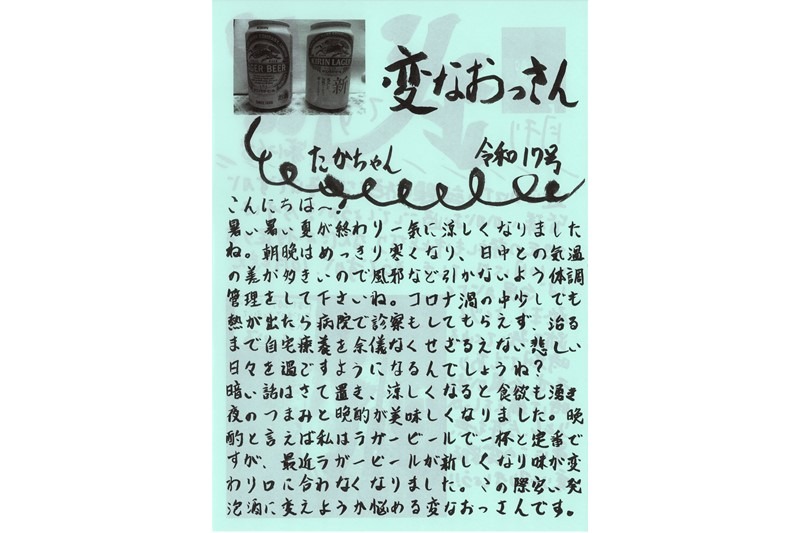 LAGER BEER
KIRIN LAGER
新
変なおっさん
たかちゃん 令和17号
こんにちは～!
暑い暑い夏が終わり一気に涼しくなりました
ね。朝晩はめっきり寒くなり、日中との気温
の差が多きいので風邪など引かないよう体調
管理をして下さいね。コロナ渦の中少しでも
熱が出たら病院で診察もしてもらえず、治る
まで自宅療養を余儀なくせざるえない悲しい
日々を過ごすようになるんでしょうね?
暗い話はさて置き、涼しくなると食欲も湧き
夜のつまみと晩酌が美味しくなりました。晩
酌と言えば私はラガービールで一杯と定番で
すが、最近ラガービールが新しくなり味が変
わり口に合わなくなりました。この際安い発
泡酒に変えようか悩める変なおっさんです。